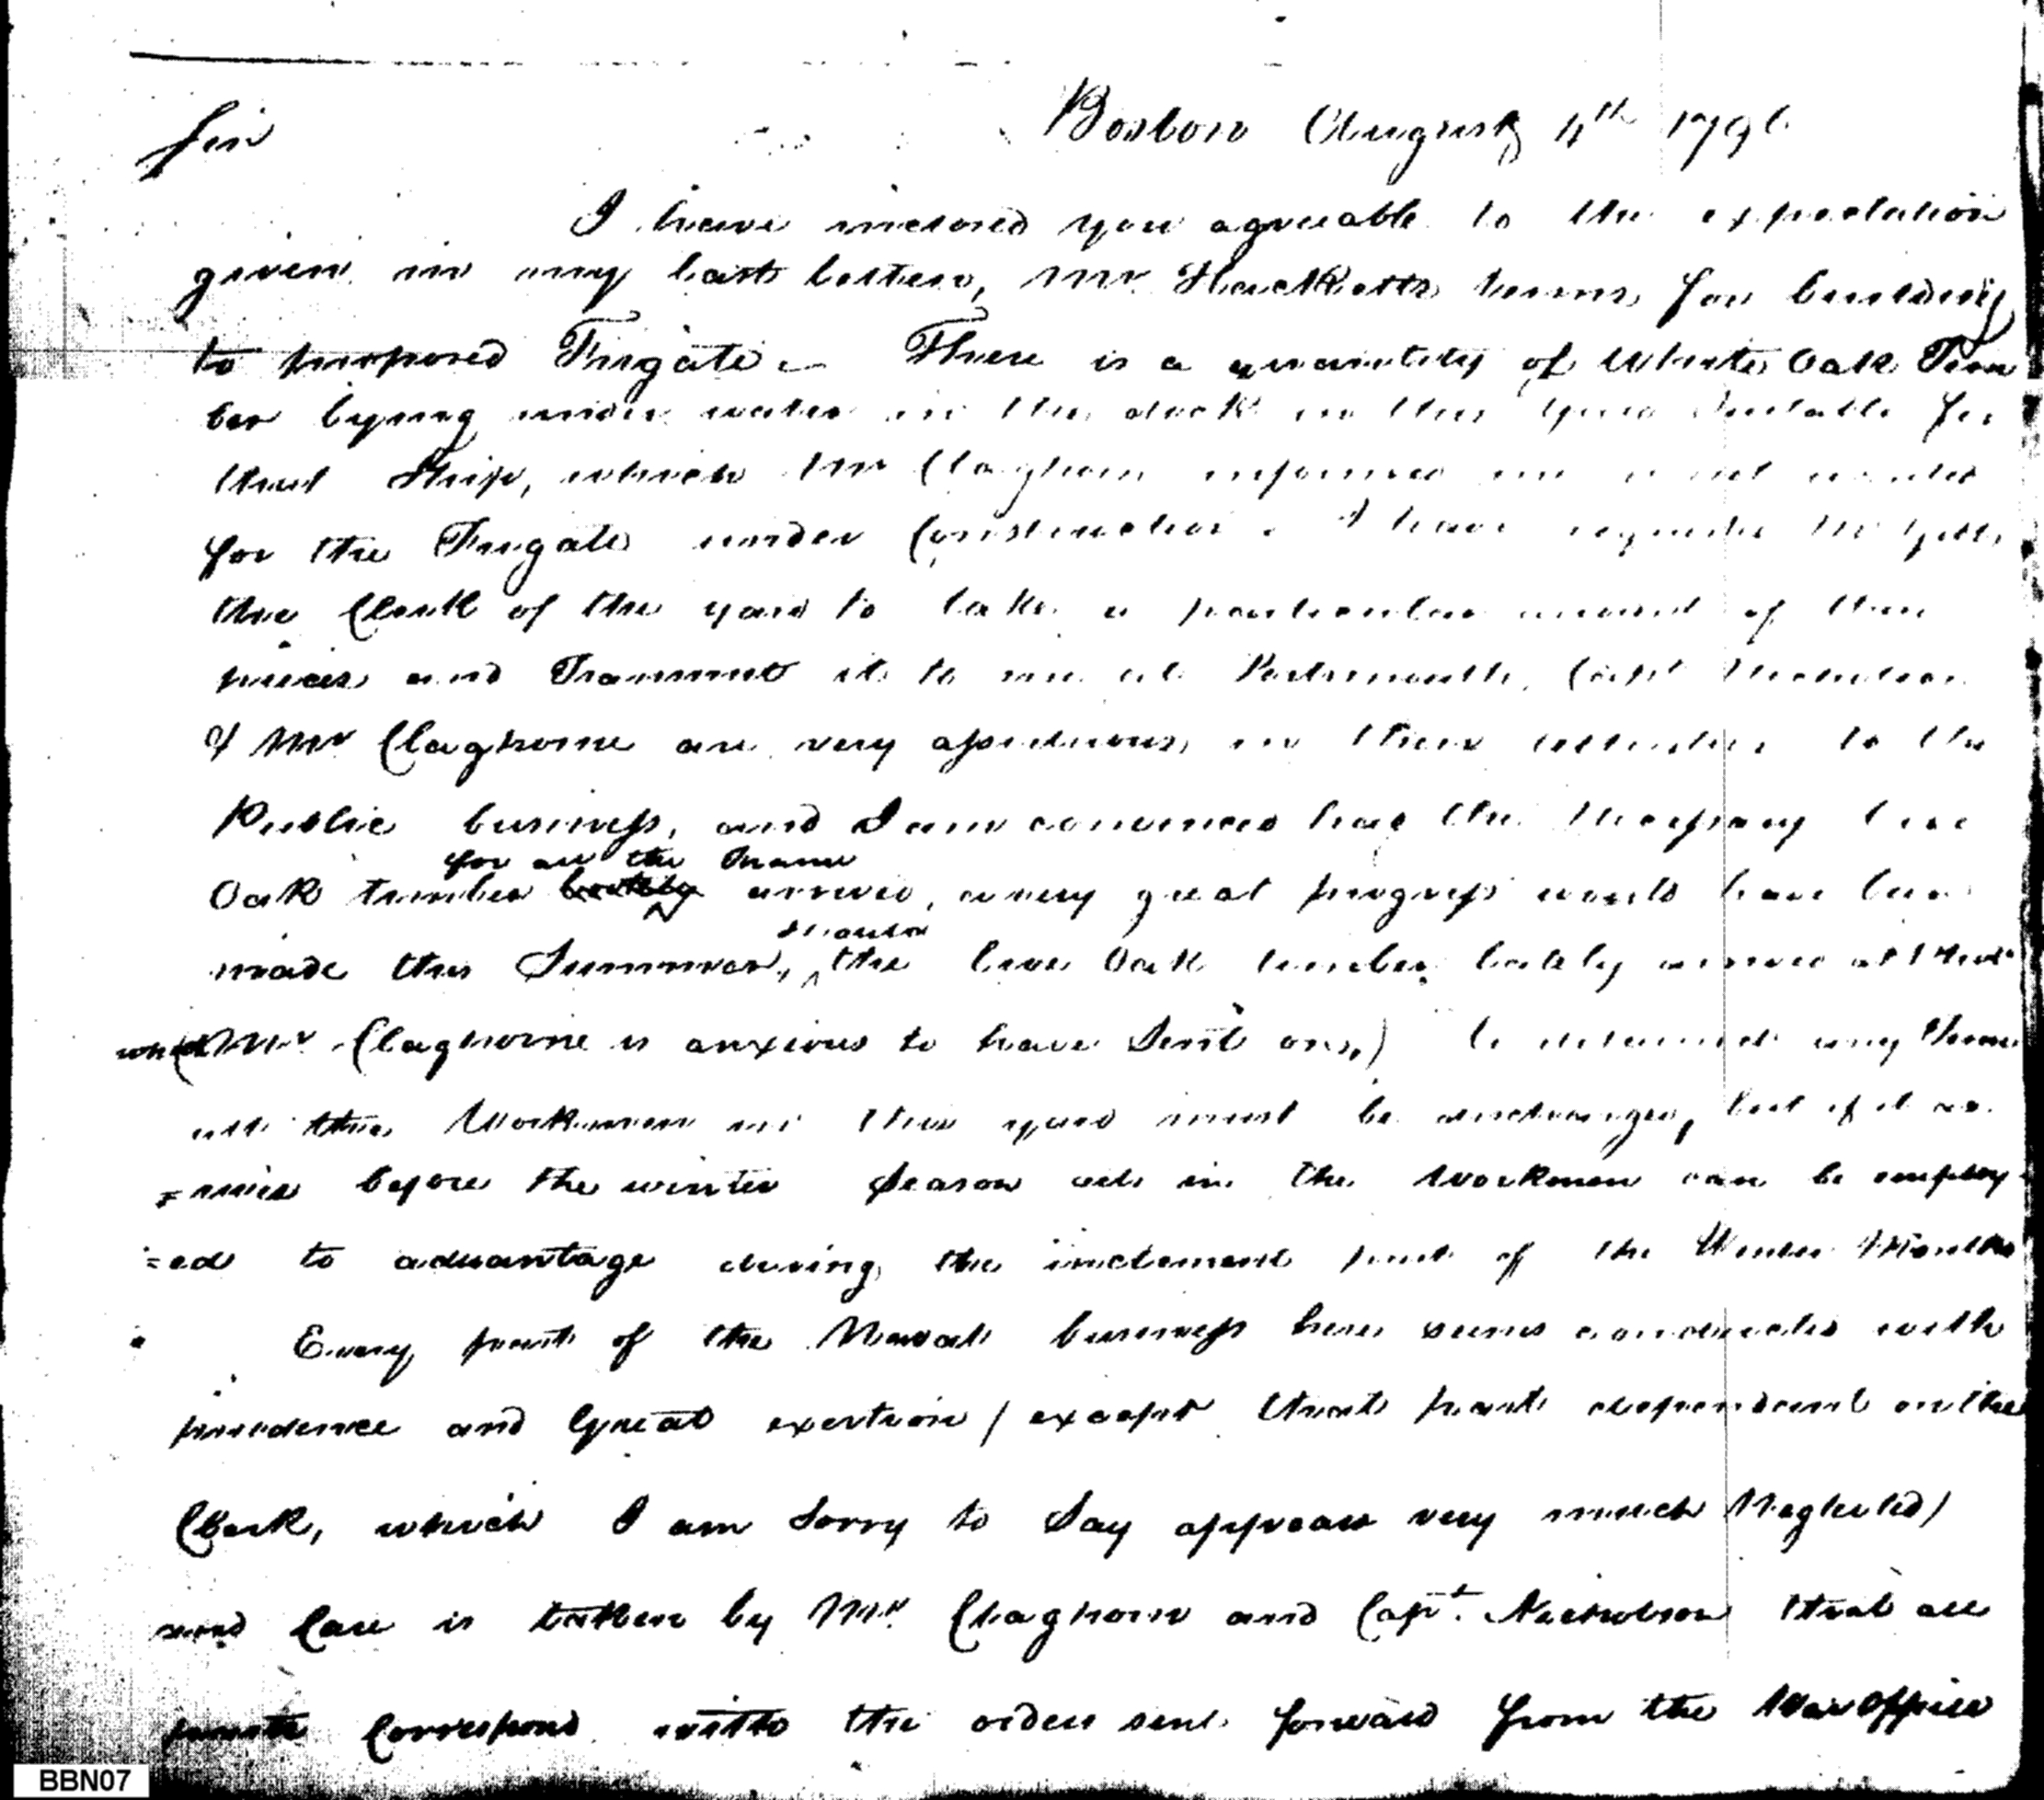 Boston August 4th 1796
Sir
I have inclosed you agreeable to the expectation
given in my last letter, Mr Hacketts terms for building
to proposed Frigate. There is a quantity of White Oak Tim
ber lying under water in the dock in this yard Suitable for
that Ship, which Mr Claghorn informed me is not wanted
for the Frigate under Construction. I have requested Mr
the Clerk of the yard to take a particular account of the
pieces and Transmit it to me at Portsmouth. Capt Nicholson
& Mr Claghorne are very assiduous in their attention to the
Public business, and I am convinced had the necessary live
for all the Frame
Oak timber lately arrived, a very great progress would have been
should
made this Summer, the live Oak timber lately arrived at
which (Mr Claghorne is anxious to have Sent on,) be detained any time
all the Workmen in this yard must be discharged, but if it ar
=rives before the winter Season sets in the Workmen can be employ
=ed to advantage during the inclement part of the Winter Months
Every part of the Naval business here seems conducted with
prudence and Great exertion / except that part dependant on the
Clerk, which I am Sorry to Say appears very much Neglected /
and Care is taken by Mr Claghorn and Capt. Nicholson that all
parts Correspond with the orders sent forward from the War Office
BBN07